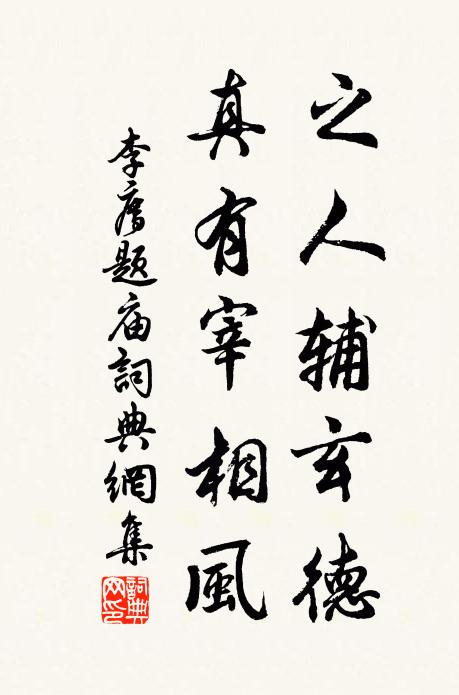 之人辅玄德
真有宰相風
李廌题庙詞典網集
詞典网印